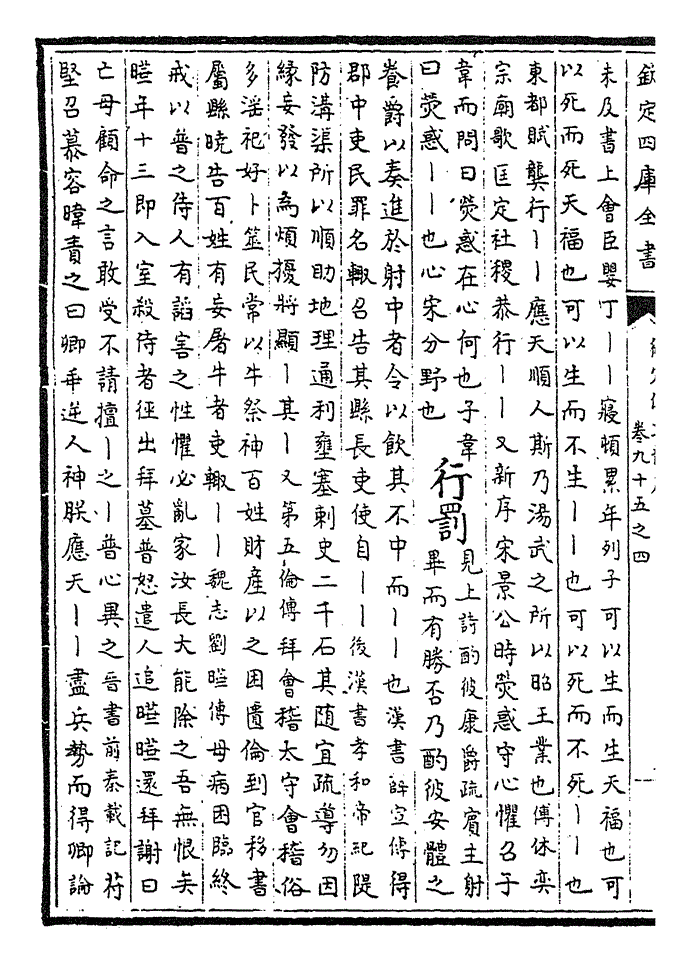 欽定四庫全書
卷九十五之四
未及書上會臣嬰丁丨丨寢頓累年列子可以生而生天福也可
以死而死天福也可以生而不生丨丨也可以死而不死丨丨也
東都賦龔行丨丨應天順人斯乃湯武之所以昭王業也傅休奕
宗廟歌匡定社稷恭行丨丨又新序宋景公時熒惑守心懼召子
韋而問曰熒惑在心何也子韋
曰熒惑丨丨也心宋分野也
行罰
見上詩酌彼康爵疏賓主射
畢而有勝否乃酌彼安體之
養爵以奏進於射中者令以飲其不中而丨丨也漢書薛宣傳得
郡中吏民罪名輙召告其縣長吏使自丨丨後漢書孝和帝紀隄
防溝渠所以順助地理通利壅塞刺史二千石其随宜疏導勿因
緣妄發以為煩擾將顯丨其丨又第五倫傳拜會稽太守會稽俗
多淫祀好卜筮民常以牛祭神百姓財産以之困匱倫到官移書
屬縣曉告百姓有妄屠牛者吏輙丨丨魏志劉曄傳母病困臨終
戒以普之侍人有謟害之性懼必亂家汝長大能除之吾無恨矣
曄年十三即入室殺侍者徑出拜墓普怒遣人追曄曄還拜謝曰
亡母顧命之言敢受不請擅丨之丨普心異之晉書前秦載記苻
堅召慕容暐責之曰卿乖逆人神朕應天丨丨盡兵勢而得卿論